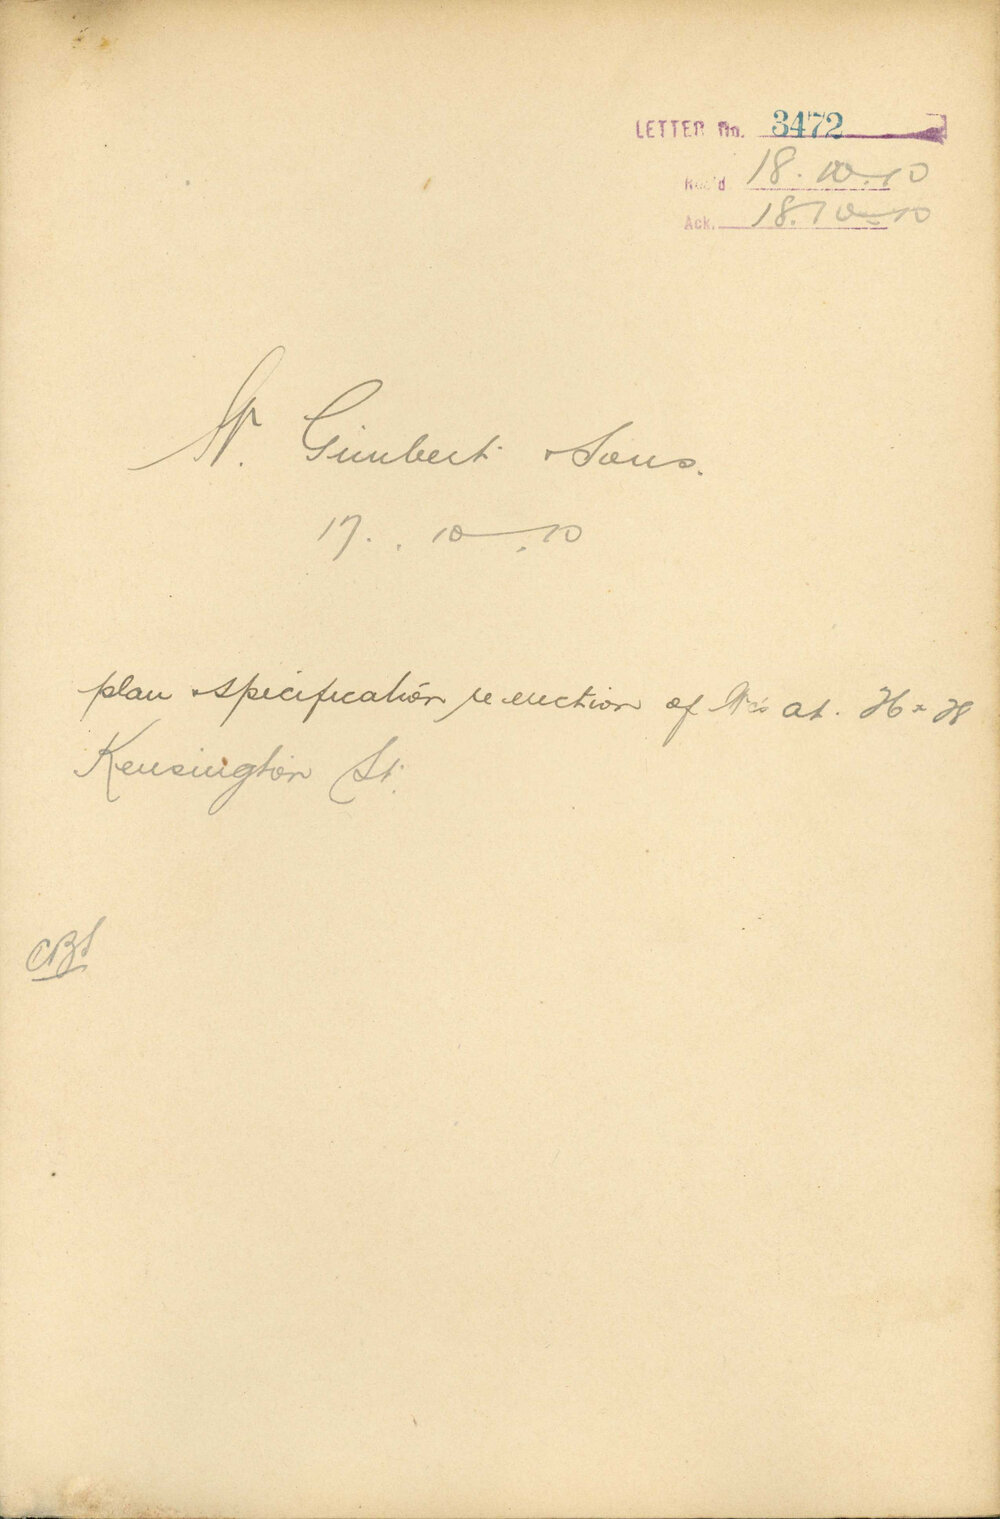 LETTER No. 3472
Rec'd 18.10.10
Ack. 18.10.10
W. Gimbert & Sons.
17.10.10
plan & specification re erection of Wcs at.
Kensington St.